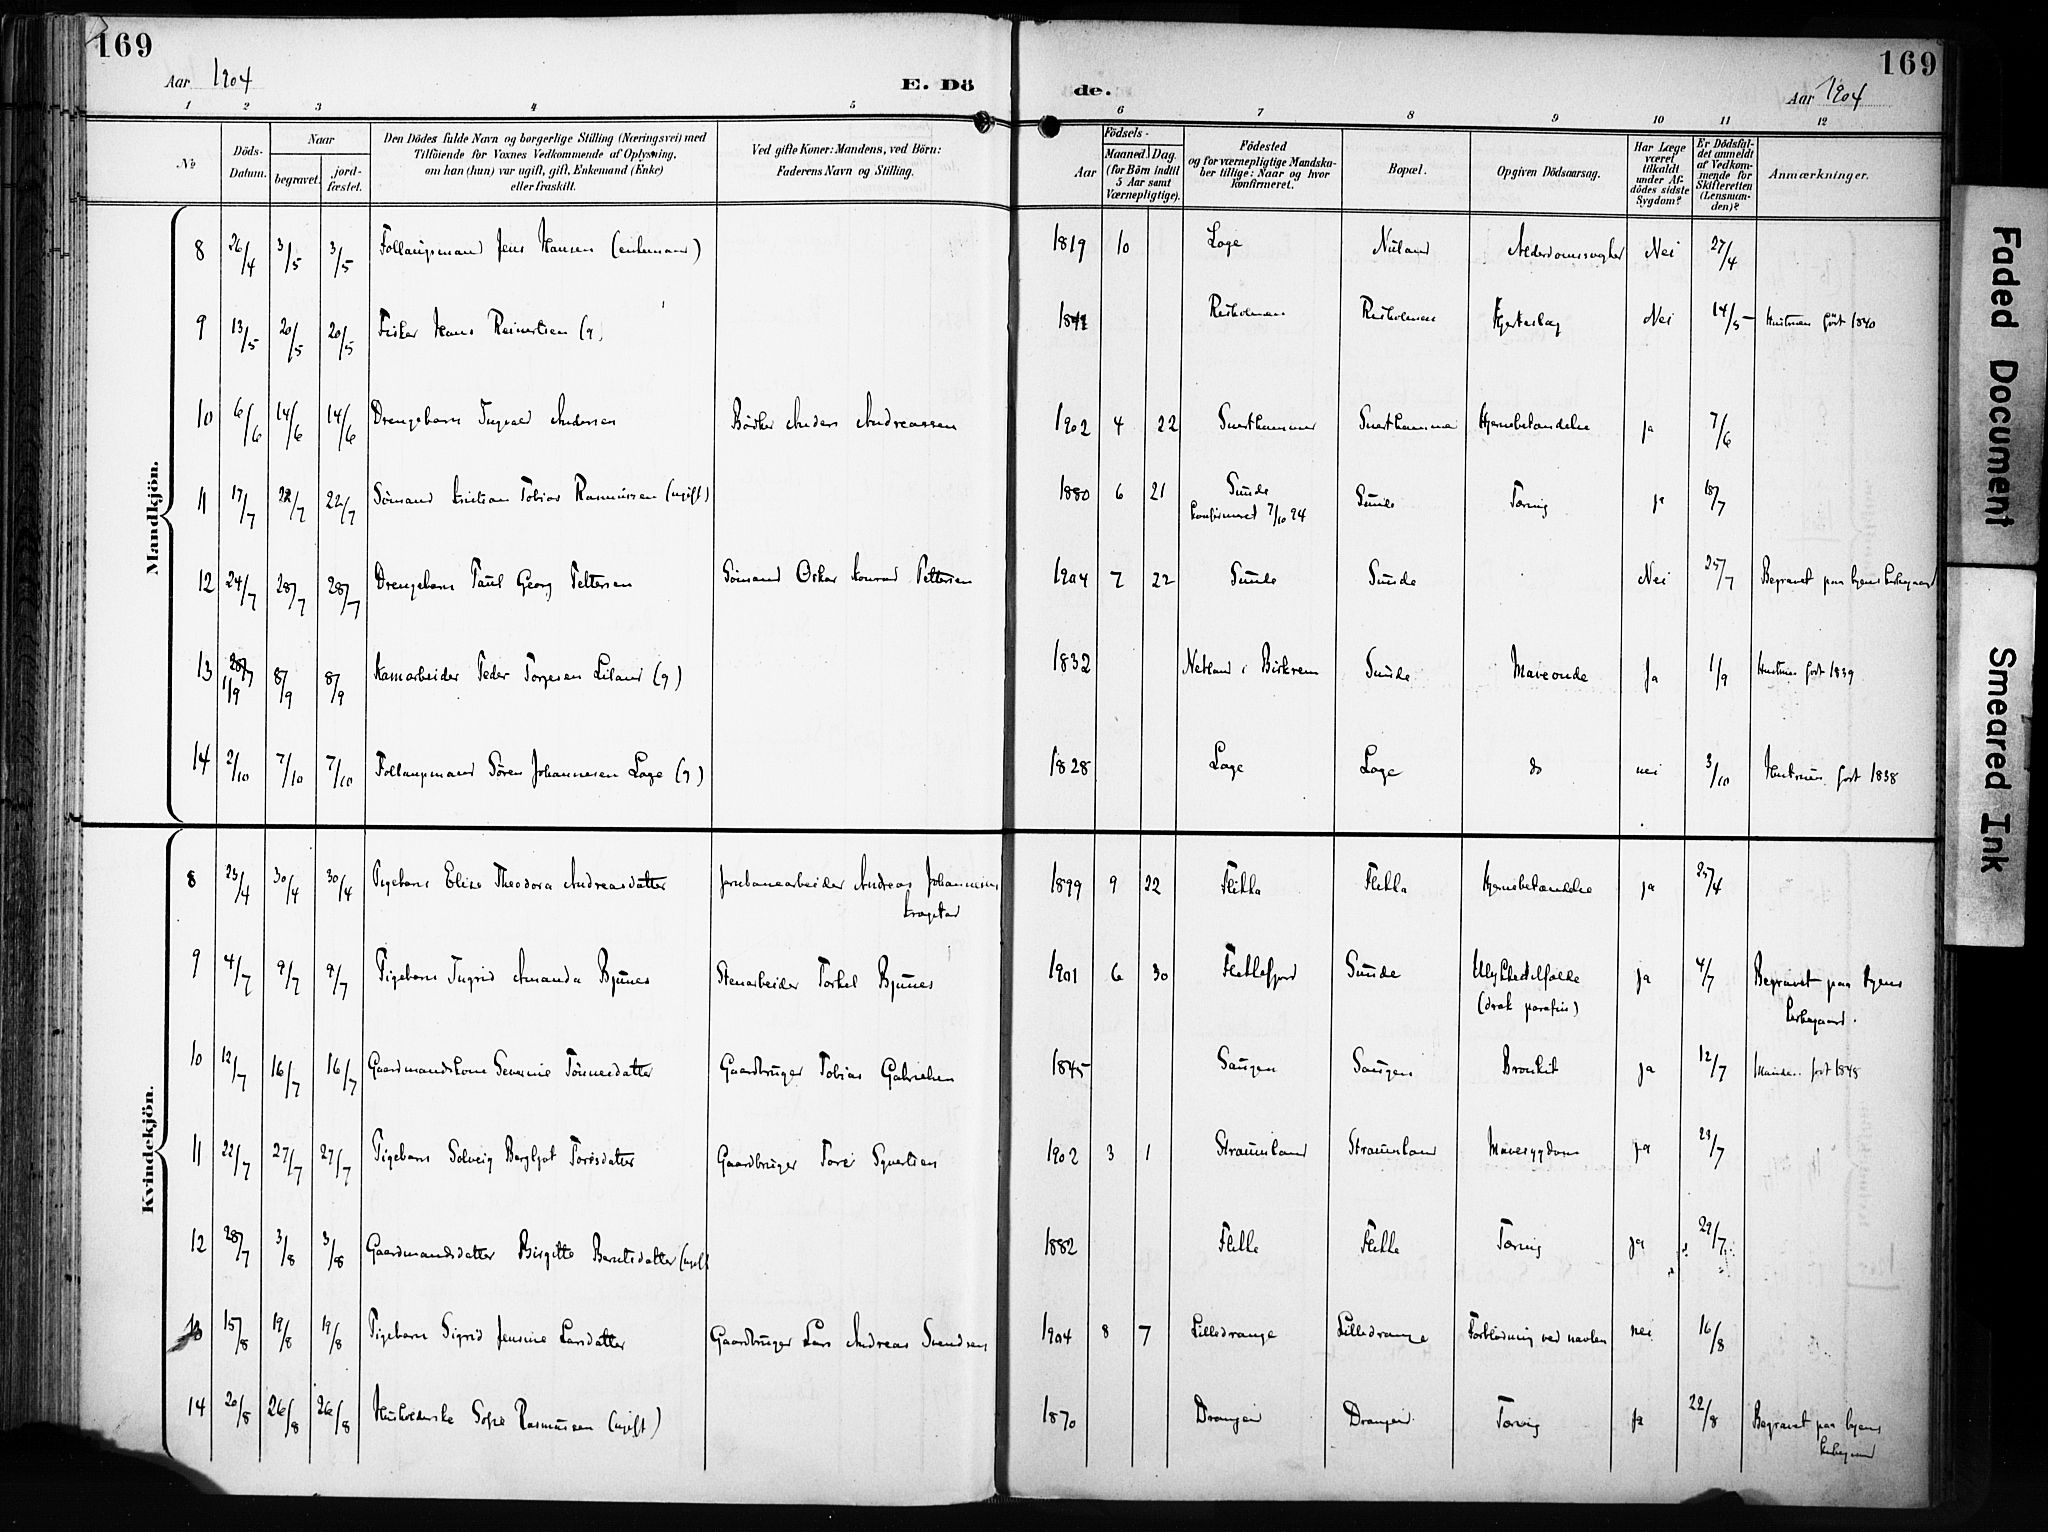 169
Aar 1904
E. Dö
1 2 3 4 5
№
Döds-Datum.
Naar
begravet.
jord-fæstet.
Den Dödes fulde Navn og borgerlige Stilling (Næringsvei) med
Tilföiende for Voxnes Vedkommende af Oplysning,
om han (hun) var ugift, gift, Enkemand (Enke)
eller fraskilt.
Ved gifte Koner: Mandens, ved Börn:
Faderens Navn og Stilling.
169
de.
Aar 1904
6 7 8 9 10 11 12
Födsels-
Aar
Maaned. Dag.
(for Börn indtil
5 Aar samt
Værnepligtige).
Födested
og for værnepligtige Mandska-
ber tillige: Naar og hvor
konfirmeret.
Bopæl.
Opgiven Dödsaarsag.
Har Læge
været
tilkaldt
under Af-
dödes sidste
Sygdom?
Er Dödsfal-
det anmeldt
af Vedkom-
mende for
Skifteretten
(Lensman-
den)?
Anmærkninger.
Mandkjön.
8 26/4 3/5 3/5 Follaugsmand Jens Hansen (enkemand) 1819 10 Loge Nuland Alderdomssvaghed Nei 27/4
9 13/5 20/5 20/5 Fisker Hans Reinertsen (g. Rusholmen Rusholmen Hjerteslag Nei 14/5 Hustruen født 1840
10 6/6 14/6 14/6 Drengebarn Ingvald Andersen Bødker Anders Andreassen 1902 4 22 Svarthammer Svarthammer Hjernebetændelse ja 7/6
11 17/7 22/7 22/7 Sømand Kristian Tobias Rasmussen (ugift) 1880 6 21 Sunde Sunde Tæring ja 18/7
konfirmeret 7/10 24
12 24/7 28/7 28/7 Drengebarn Paul Georg Pettersen Sømand Oskar Konrad Pettersen 1904 7 22 Sunde Sunde Nei 25/7 Begravet paa byens kirkegaard
13 28/7 1/9 8/9 8/9 Havnarbeider Peder Torgersen Liland (g) 1832 Netland i Birkrem Sunde Maveonde Ja 1/9 Hustruen født 1839
14 2/10 7/10 7/10 Follaugsmand Søren Johannesen Loge (g) 1828 Loge Loge do nei 3/10 Hustruen født 1838
Kvindekjön.
8 23/4 30/4 30/4 Pigebarn Elise Theodora Andreasdatter Jernbanearbeider Andreas Johannesen 1899 9 22 Flikka Flikka Hjernebetændelse ja 25/4
Kragstad
9 4/7 9/7 9/7 Pigebarn Ingrid Amanda Bjunes Stenarbeider Torkel Bjunes 1901 6 30 Flekkefjord Sunde Ulykkestilfælde ja 4/7 Begravet paa byens
(drak parafin) kirkegaard.
10 12/7 16/7 16/7 Gaardmandskone Severine Tønnesdatter Gaardbruger Tobias Gabrielsen 1845 Saugen Saugen Bronkit ja 12/7 Manden født 1848
11 22/7 27/7 27/7 Pigebarn Solveig Bergljot Toresdatter Gaardbruger Tore Syvertsen 1902 3 1 Straumland Straumland Mavesygdom ja 23/7
12 28/7 3/8 3/8 Gaardmandsdatter Birgitte Berntsdatter (ugift) 1882 Flikka Flikka Tæring ja 29/7
13 15/8 19/8 19/8 Pigebarn Sigrid Jensine Larsdatter Gaardbruger Lars Andreas Svendsen 1904 8 7 Lilledrange Lilledrange Forblødning ved navlen nei 16/8
14 20/8 26/8 26/8 Husholderske Sofie Rasmussen (ugift) 1870 Drangeid Drangeid Tæring ja 22/8 Begravet paa byens
kirkegaard
Faded Document
Smeared Ink